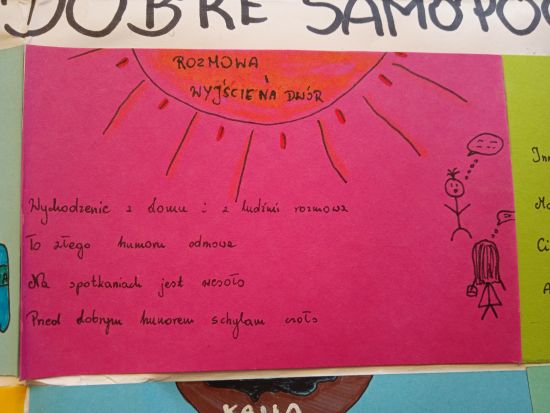 DOBRE SAMOPOC
ROZMOWA
I
WYJŚCIE NA DWÓR
Wychodzenie z domu i z ludźmi rozmowa
To złego humoru odmowa
Na spotkaniach jest wesoło
Przed dobrym humorem schylam czoło
Inn
Mo
Ci
A
KAWA